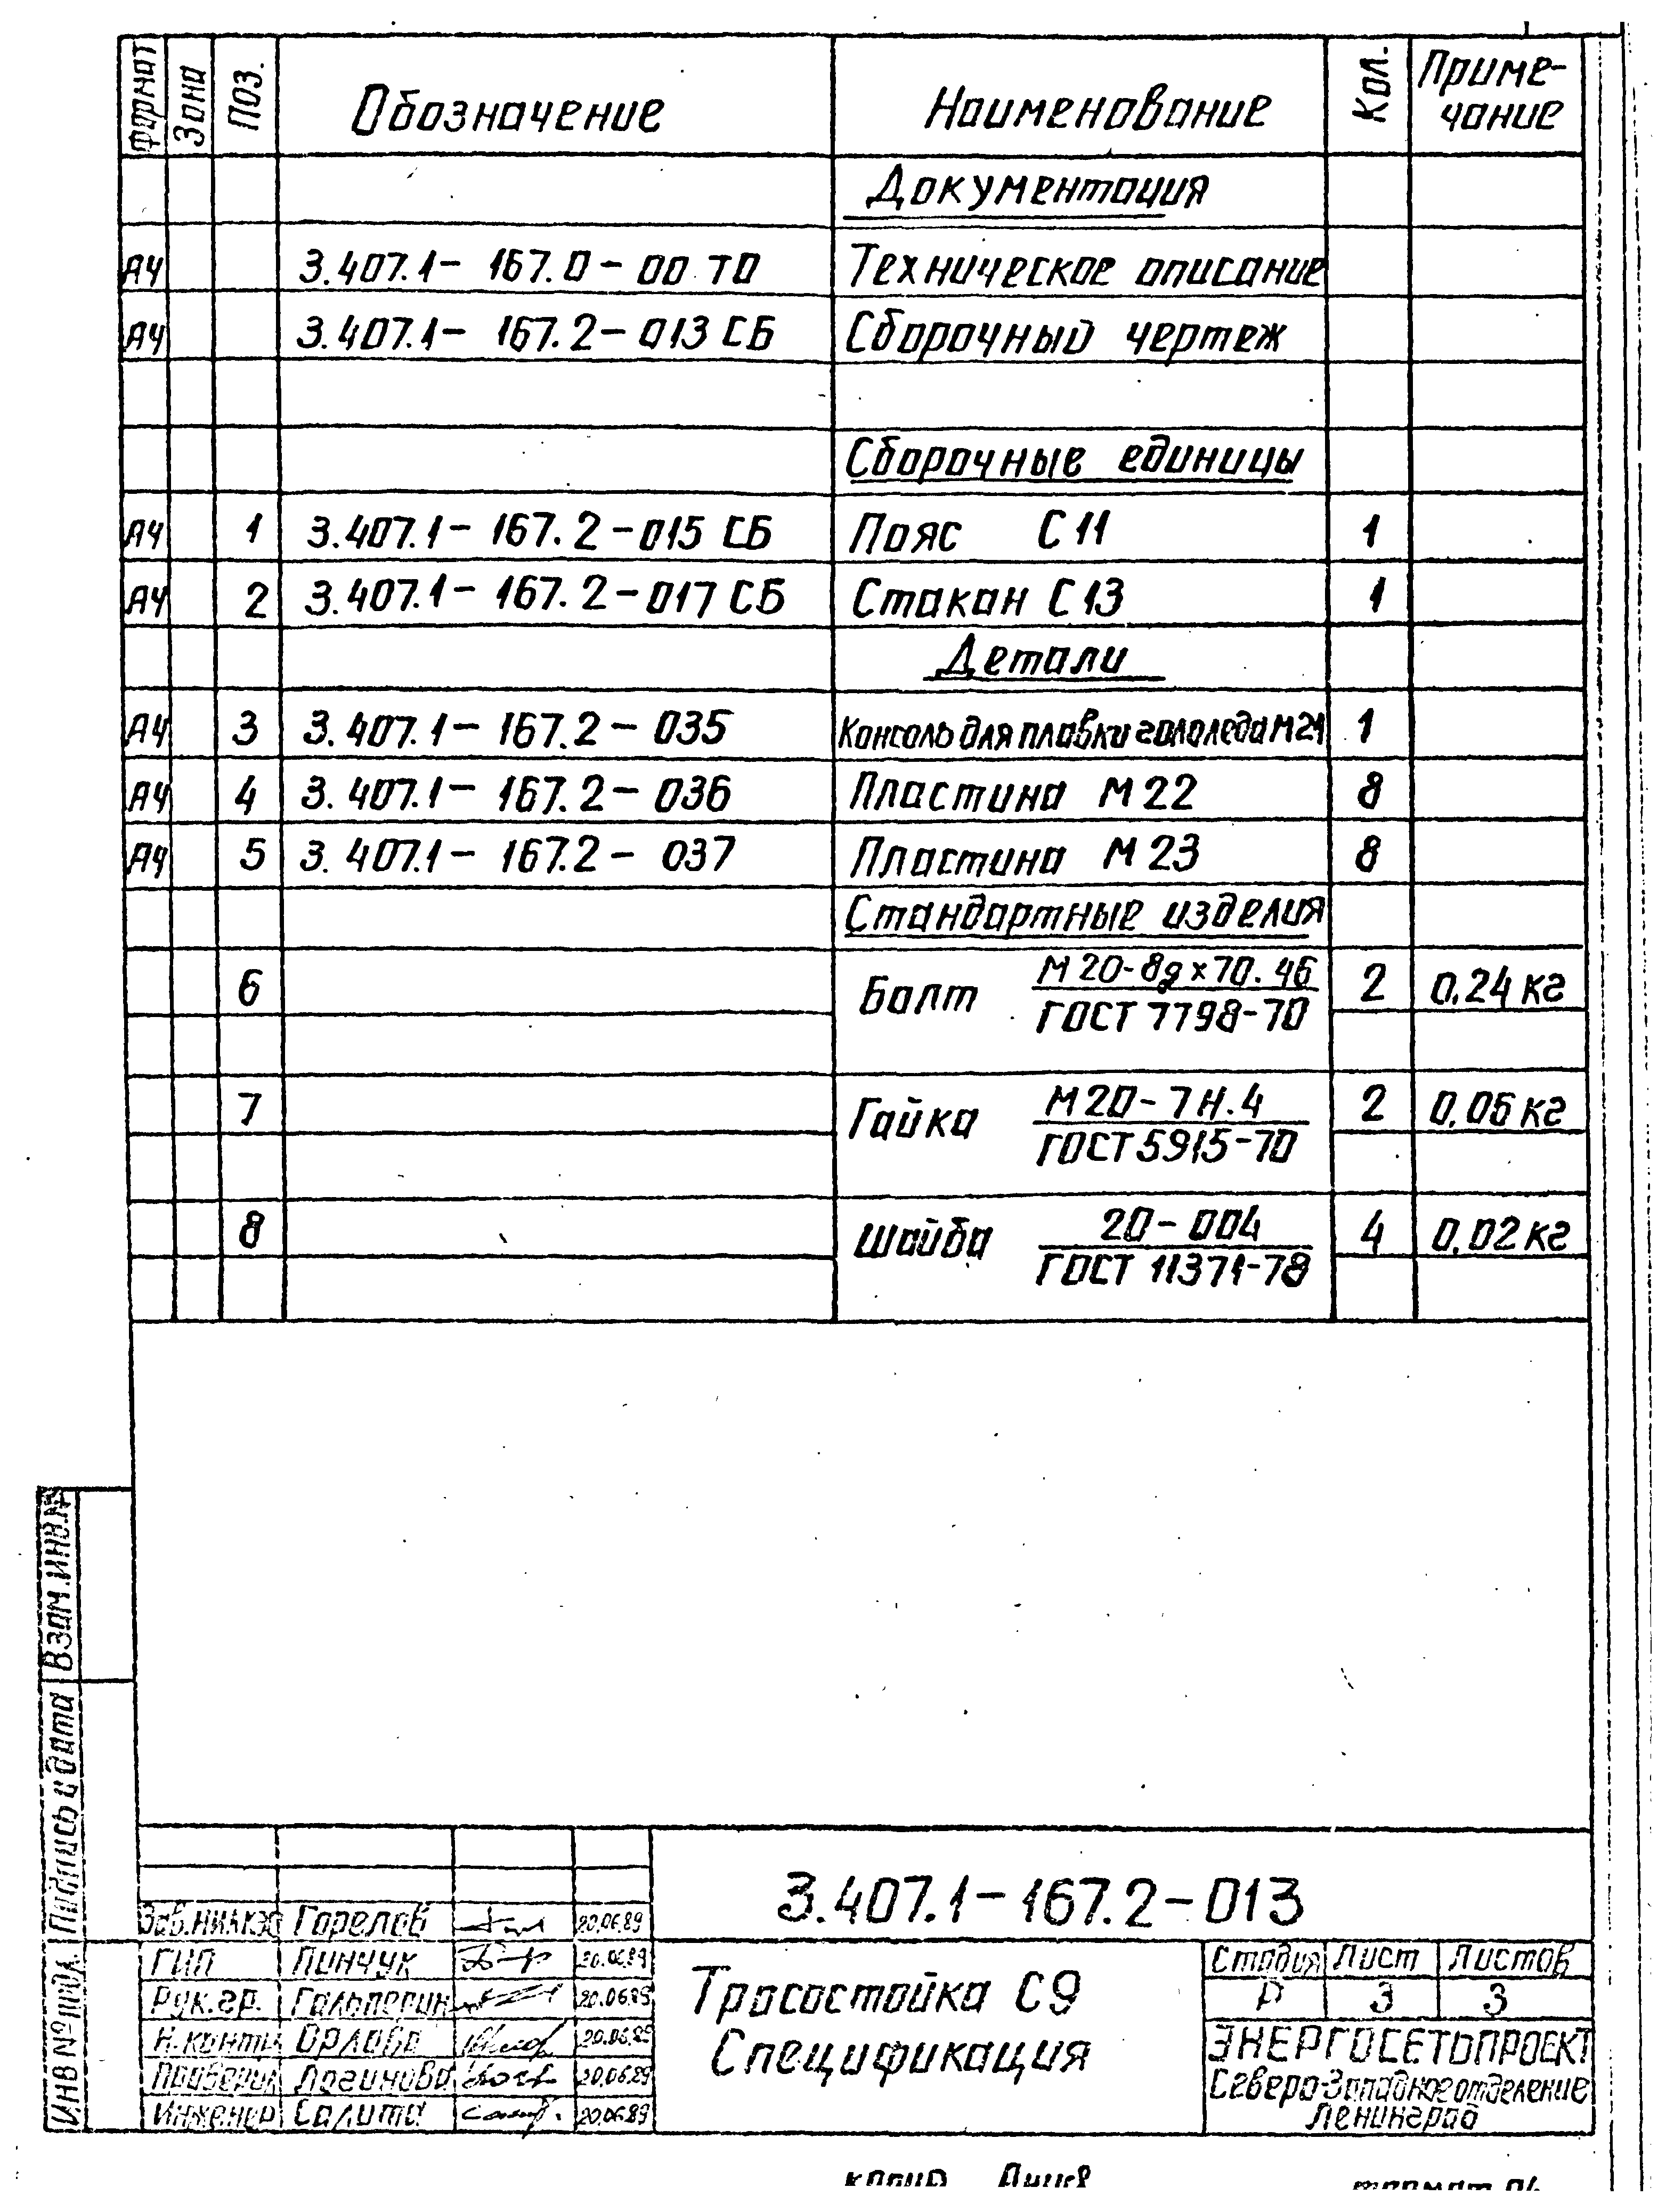 Формат Зона Поз. Обозначение Наименование Кол. Приме-
чание
Документация
А4 3.407.1- 167.0-00 ТО Техническое описание
А4 3.407.1- 167.2-013 СБ Сборочный чертеж
Сборочные единицы
А4 1 3.407.1- 167.2-015 СБ Пояс С11 1
А4 2 3.407.1- 167.2-017 СБ Стакан С13 1
Детали
А4 3 3.407.1- 167.2- 035 Консоль для плавки гололеда М21 1
А4 4 3.407.1- 167.2- 036 Пластина М22 8
А4 5 3.407.1- 167.2- 037 Пластина М23 8
Стандартные изделия
6 Болт М20-8g×70.46 2 0,24 кг
ГОСТ 7798-70
7 Гайка М20-7Н.4 2 0,06 кг
ГОСТ 5915-70
8 Шайба 20-004 4 0,02 кг
ГОСТ 11371-78
Взам.инв.№
Подпись и дата
Инв № подл.
3.407.1-167.2-013
Зав.НИЛКЭС Горелов 20.06.89
ГИП Пинчук 20.06.89
Рук.гр. Гальперин 20.06.89
Н.контр Орлова 20.06.89
Проверил Логинова 20.06.89
Инженер Салита 20.06.89
Тросостойка С9
Спецификация
Стадия Лист Листов
Р 3 3
ЭНЕРГОСЕТЬПРОЕКТ
Северо-Западное отделение
Ленинград
копир
формат А4